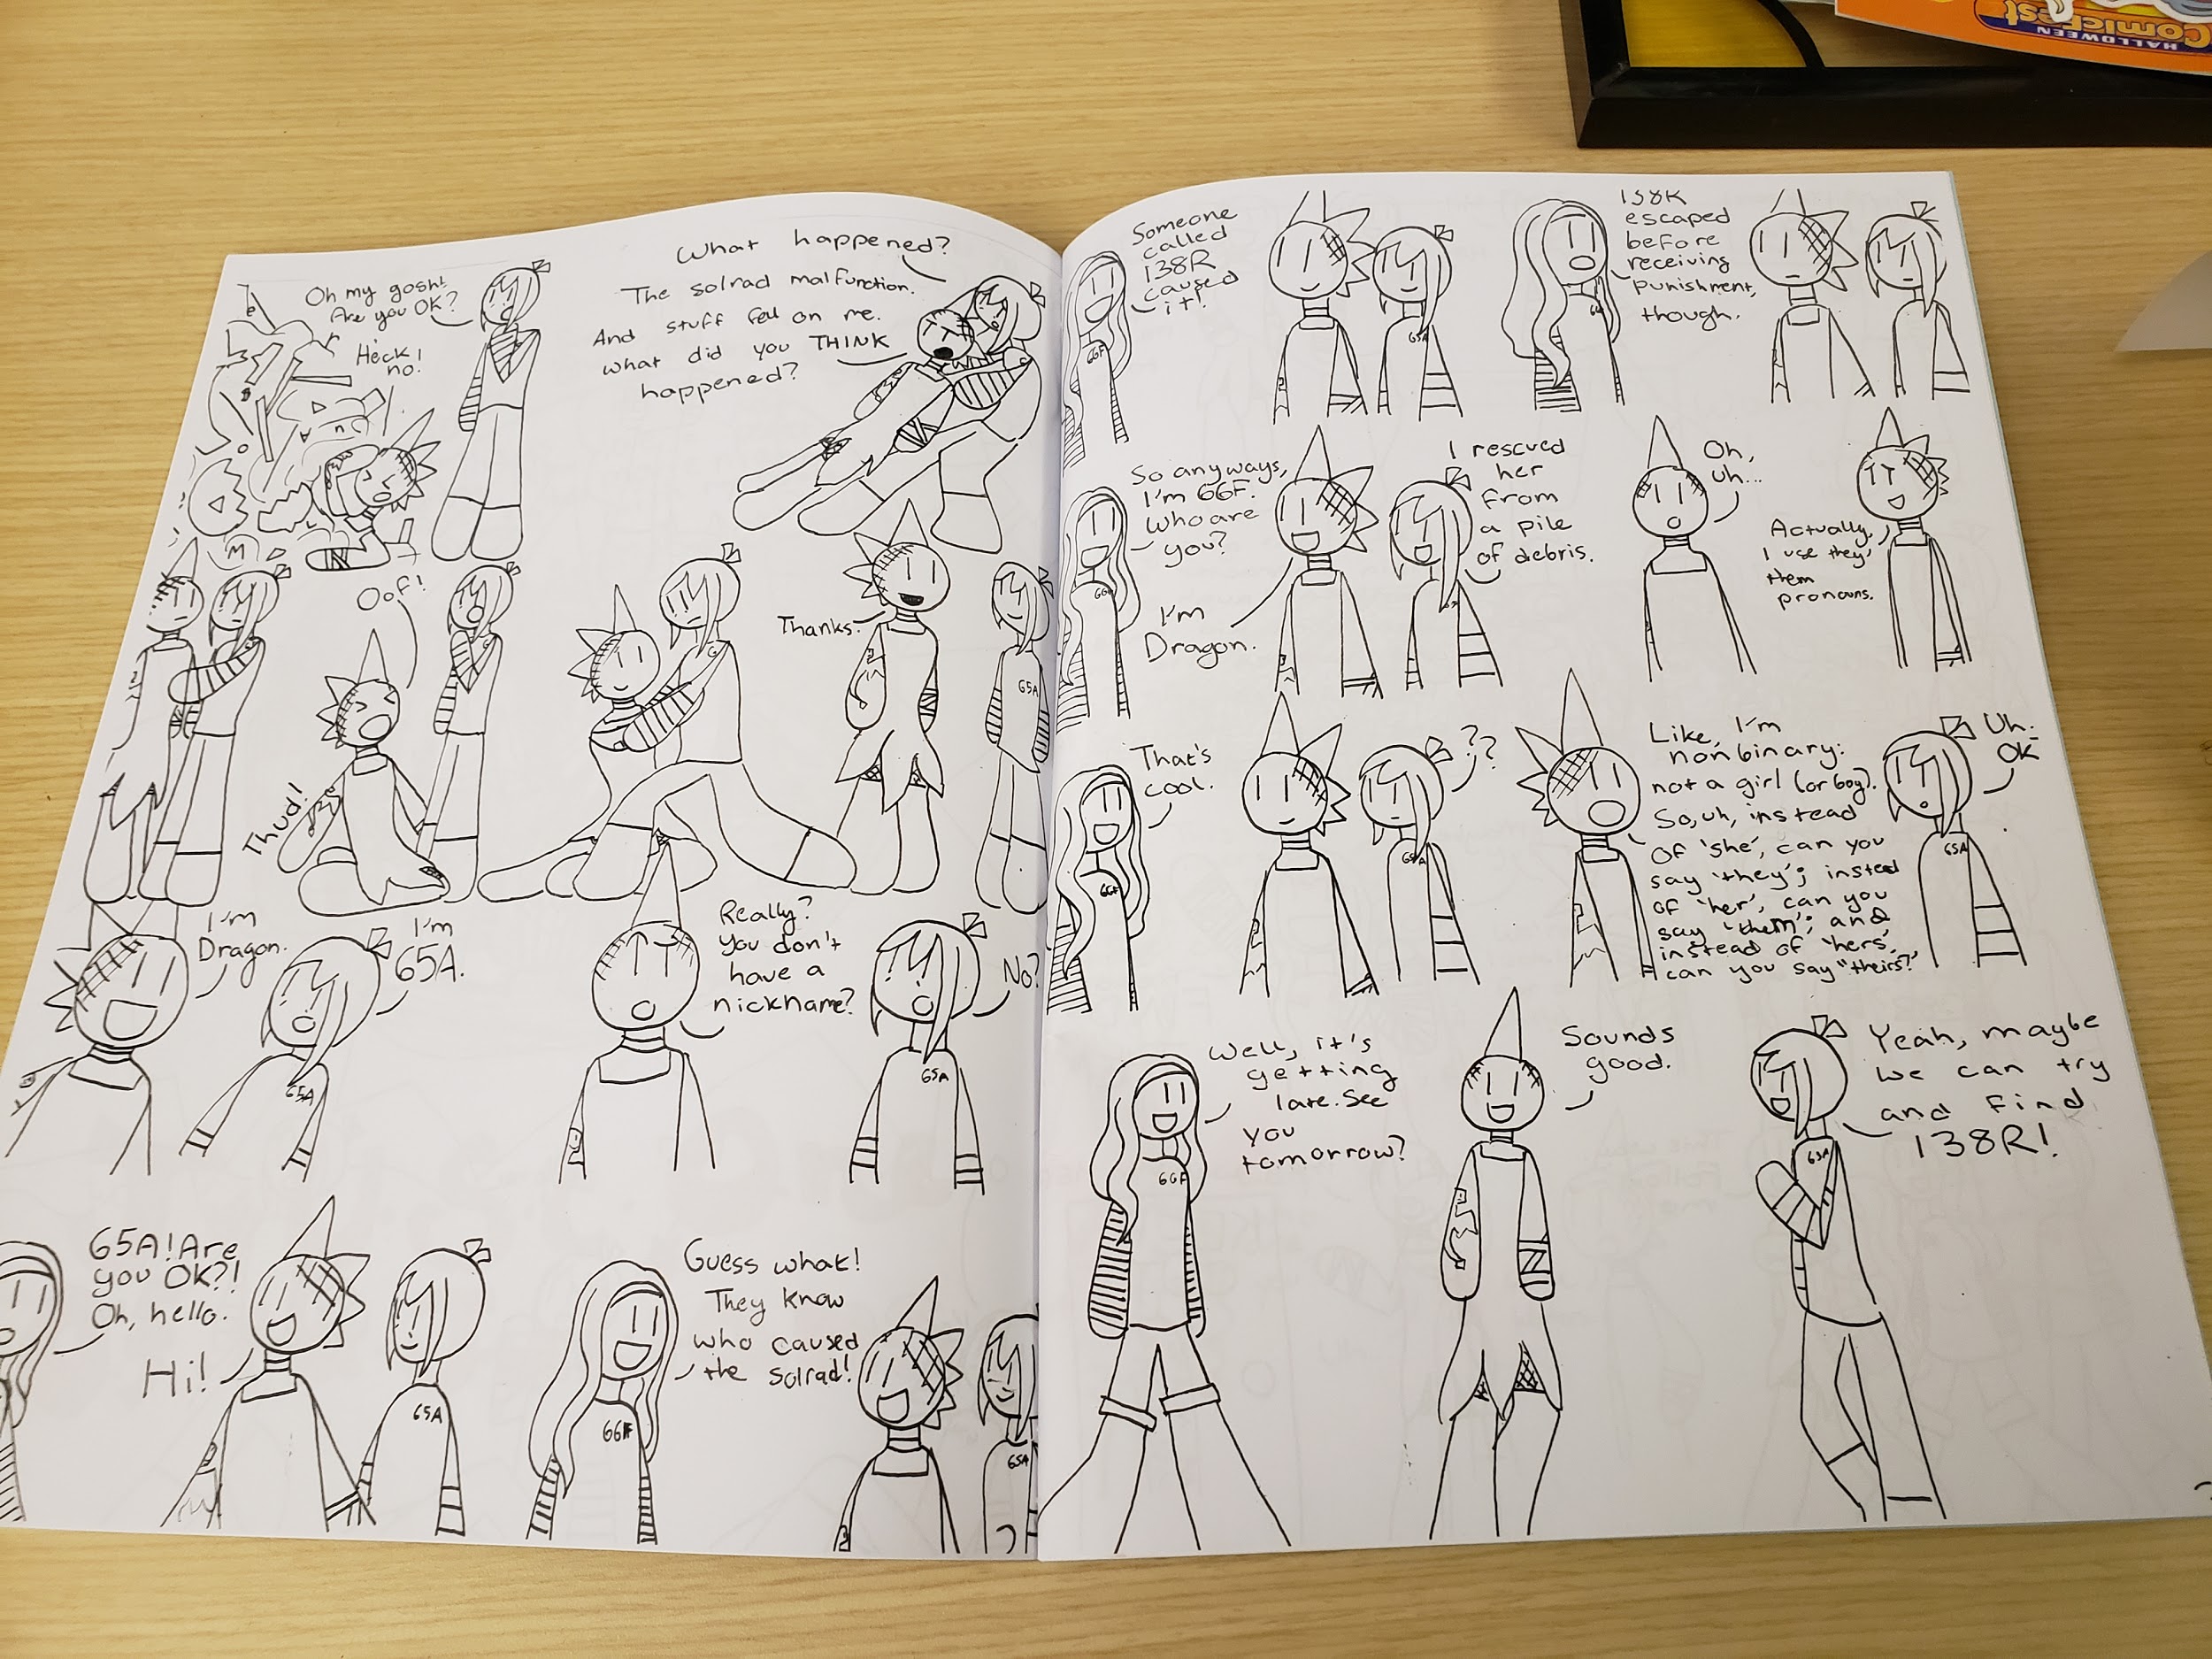 Oh my gosh!
Are you OK?
Heck
no!
What happened?
The solrad malfunction.
And stuff fell on me.
what did you THINK
happened?
Oof!
Thud!
Thanks.
65A
I'm
Dragon.
I'm
65A.
65A
Really?
You don't
have a
nickname?
No?
65A
65A! Are
you OK?!
Oh, hello.
Hi!
65A
Guess what!
They know
who caused
the solrad!
66F
65A
Someone
called
138R
caused
it!
66F
65A
138R
escaped
before
receiving
punishment,
though.
So anyways,
I'm 66F.
Who are
you?
I'm
Dragon.
I rescued
her
from
a pile
of debris.
Oh,
uh...
Actually,
I use they/
them
pronouns.
That's
cool.
66F
??
65A
Like, I'm
nonbinary:
not a girl (or boy).
So, uh, instead
of 'she', can you
say 'they'; insted
of 'her', can you
say 'them'; and
instead of 'hers',
can you say "theirs?'
Uh.
OK
65A
Well, it's
getting
late. See
you
tomorrow?
66F
Sounds
good.
Yeah, maybe
we can try
and find
138R!
65A
HALLOWEEN
ComicFest